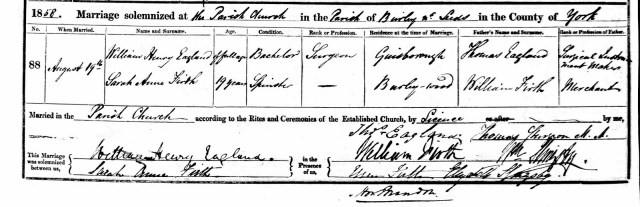 1858. Marriage solemnized at the Parish Church in the Parish of Burley nr Leeds in the County of York
No. When Married. Name and Surname. Age. Condition. Rank or Profession. Residence at the time of Marriage. Father's Name and Surname. Rank or Profession of Father.
88 August 19th William Henry Eagland of full age Bachelor Surgeon Guisborough Thomas Eagland Surgical Instrument Maker
Sarah Anne Firth 19 years Spinster — Burley-wood William Firth Merchant
Married in the Parish Church according to the Rites and Ceremonies of the Established Church, by Licence or after by me,
This Marriage was solemnized between us, William Henry Eagland. Sarah Anne Firth in the Presence of us, Thos. Eagland. Thomas Sturgeon M.A.
William Firth